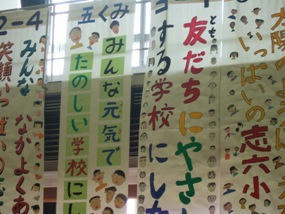 太陽のよ
いっぱいの志六小
友だちにやさし
する学校にし
五くみ
みんな元気で
たのしい学校に
2-4
みんななかよくあ
笑顔いっぱいの